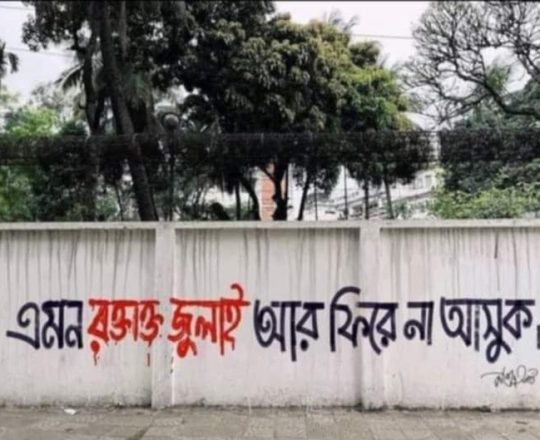 এমন রক্তাক্ত জুলাই আর ফিরে না আসুক,